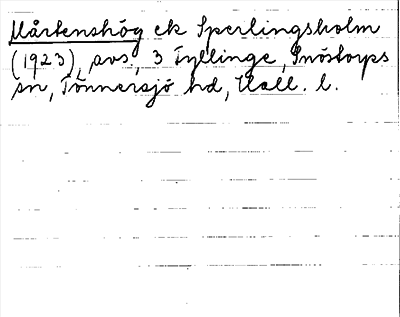 Mårtenshög ek Sperlingsholm
(1923), avs., 3 Tyllinge, Snöstorps
sn, Tönnersjö hd, Hall. l.